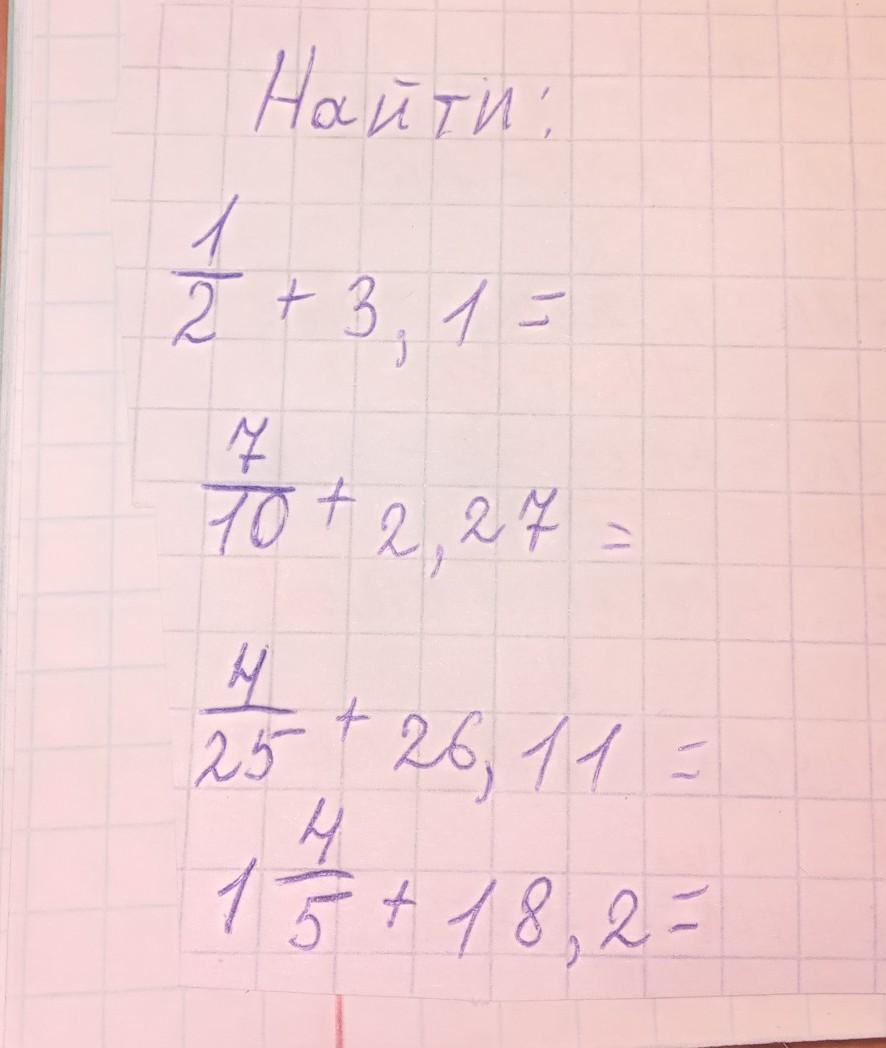 Найти:
1/2 + 3,1 =
7/10 + 2,27 =
4/25 + 26,11 =
1 4/5 + 18,2 =